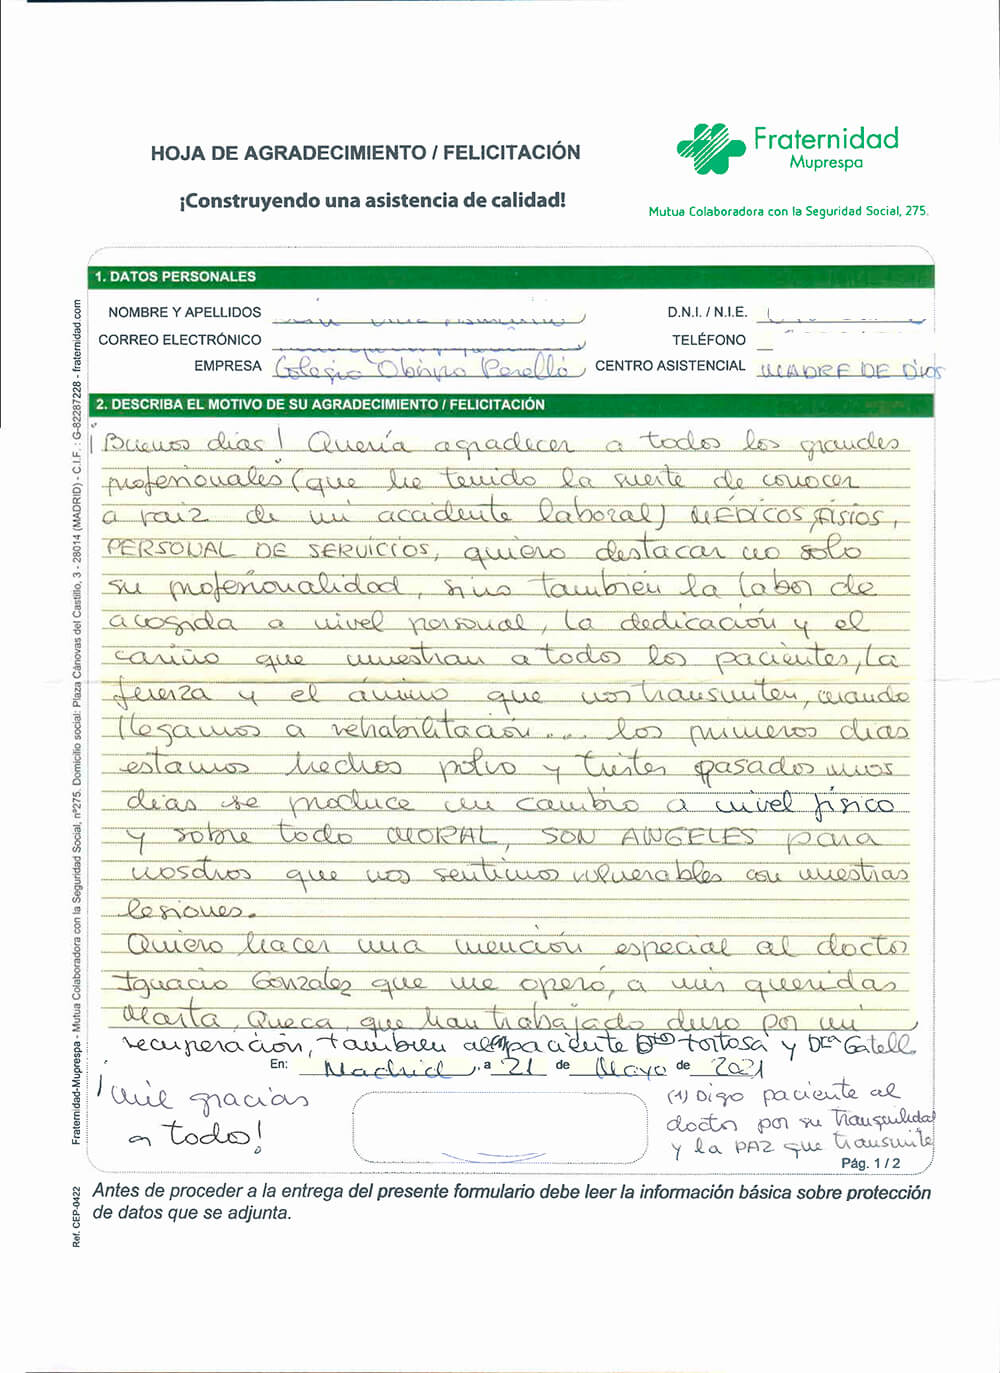 HOJA DE AGRADECIMIENTO / FELICITACIÓN
¡Construyendo una asistencia de calidad!
Fraternidad
Muprespa
Mutua Colaboradora con la Seguridad Social, 275.
1. DATOS PERSONALES
NOMBRE Y APELLIDOS
D.N.I. / N.I.E.
CORREO ELECTRÓNICO
TELÉFONO
EMPRESA Colegio Obispo Perelló
CENTRO ASISTENCIAL MADRE DE DIOS
2. DESCRIBA EL MOTIVO DE SU AGRADECIMIENTO / FELICITACIÓN
¡Buenos dias! Quería agradecer a todos los grandes
profesionales (que he tenido la suerte de conocer
a raiz de mi accidente laboral) MÉDICOS, FISIOS,
PERSONAL DE SERVICIOS, quiero destacar no solo
su profesionalidad, sino también la labor de
acogida a nivel personal, la dedicación y el
cariño que muestran a todos los pacientes, la
fuerza y el ánimo que nos transmiten, cuando
llegamos a rehabilitación... los primeros dias
estamos hechos polvo y tristes pasados unos
dias se produce un cambio a nivel físico
y sobre todo MORAL, SON ANGELES para
nosotros que nos sentimos vulnerables con nuestras
lesiones.
Quiero hacer una mención especial al doctor
Ignacio Gonzalez que me operó, a mis queridas
Marta, Queca, que han trabajado duro por mi
recuperación, tambien al paciente Dtor Tortosa y Dra Gatell
En: Madrid, a 21 de Mayo de 2021
¡Mil gracias
a todo!
(1) Digo paciente al
doctor por su tranquilidad
y la PAZ que transmite
Pág. 1 / 2
Antes de proceder a la entrega del presente formulario debe leer la información básica sobre protección
de datos que se adjunta.
Fraternidad-Muprespa - Mutua Colaboradora con la Seguridad Social, nº275. Domicilio social: Plaza Cánovas del Castillo, 3 - 28014 (MADRID) - C.I.F. : G-82287228 - fraternidad.com
Ref. CEP-0422